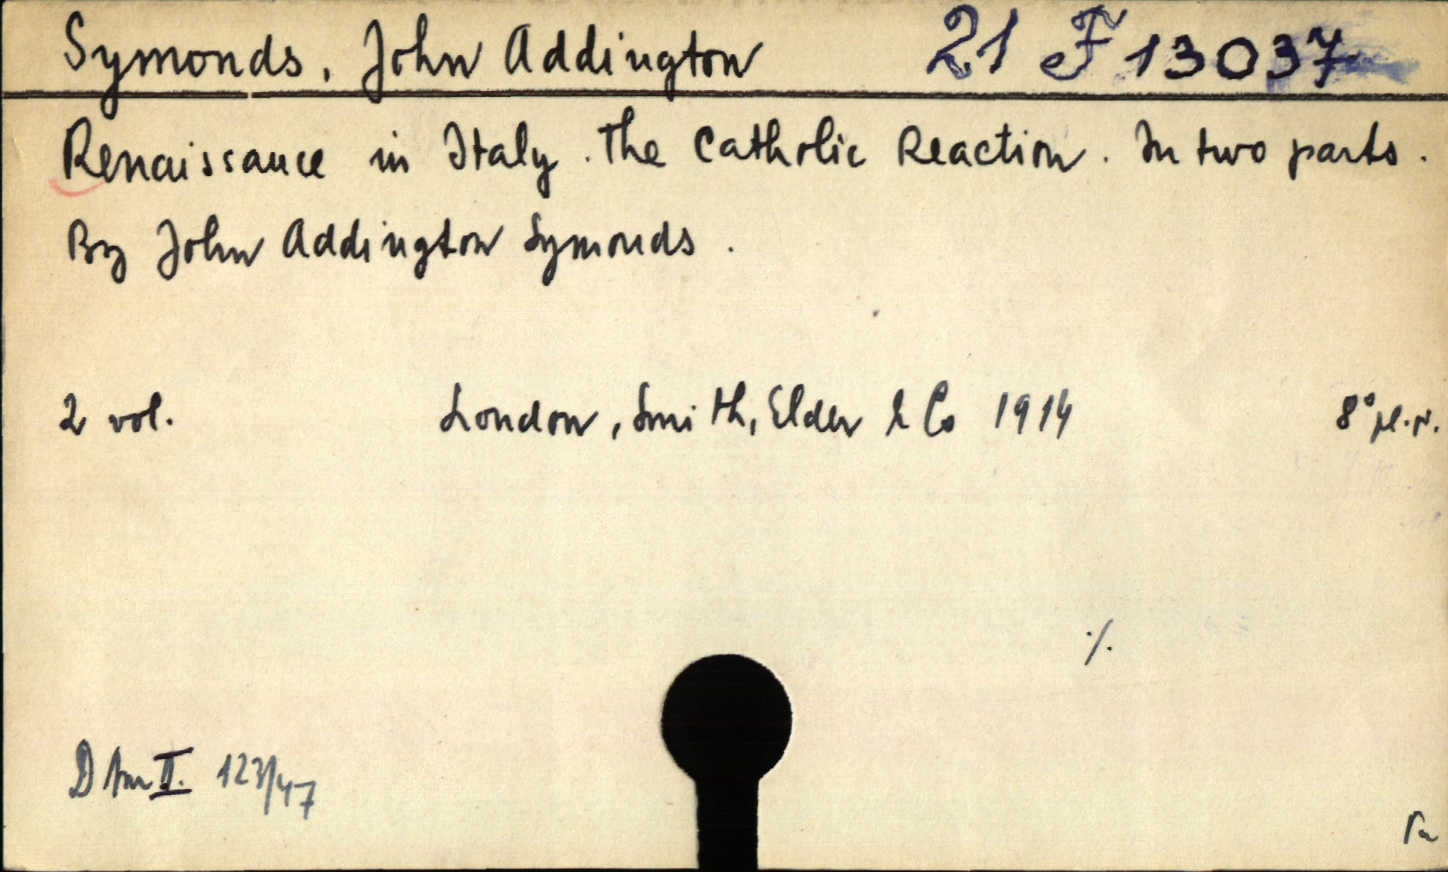 Symonds, John Addington 21 F 13037
Renaissance in Italy. The Catholic Reaction. In two parts.
By John Addington Symonds.
2 vol. London, Smith, Elder & Co 1914 8° pl.r.
·/.
D Am II. 123/47